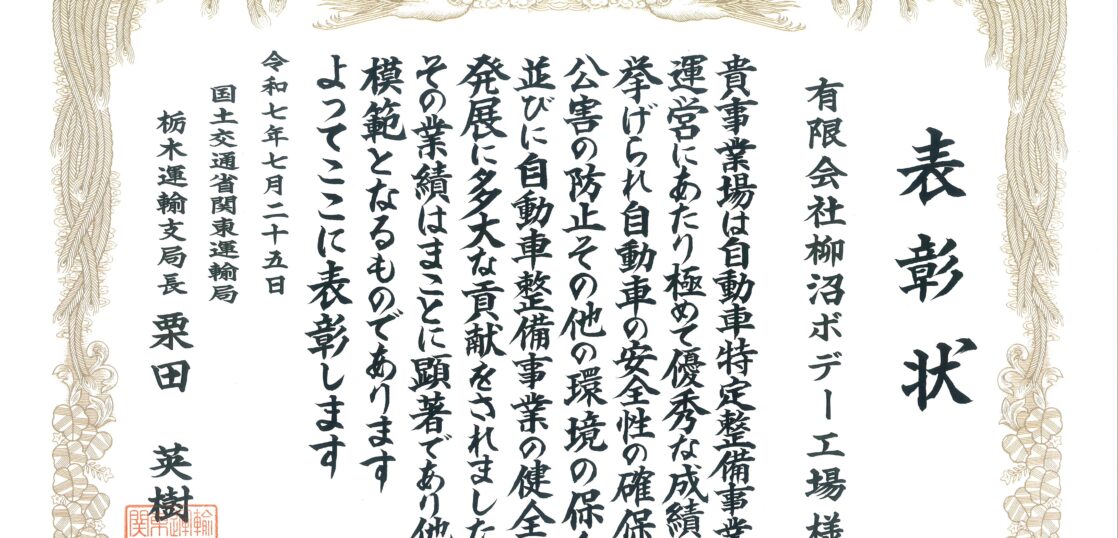 表彰状
有限会社柳沼ボデー工場様
貴事業場は自動車特定整備事業
運営にあたり極めて優秀な成績
挙げられ自動車の安全性の確保
公害の防止その他の環境の保
並びに自動車整備事業の健全
発展に多大な貢献をされました
その業績はまことに顕著であり他
模範となるものであります
よってここに表彰します
令和七年七月二十五日
国土交通省関東運輸局
栃木運輸支局長 栗田 英樹
関東運輸